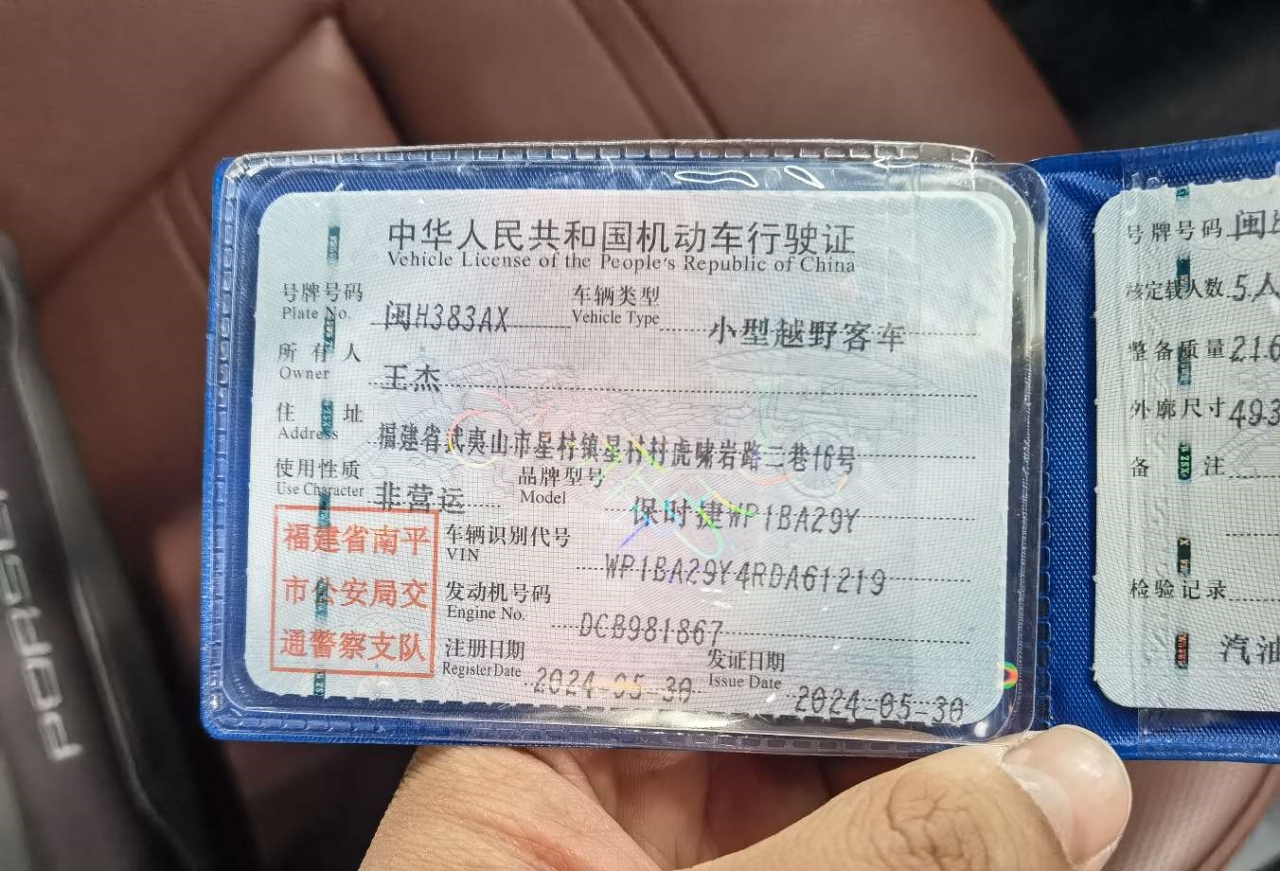 中华人民共和国机动车行驶证
Vehicle License of the People's Republic of China
号牌号码 闽H383AX 车辆类型 小型越野客车
Plate No. Vehicle Type
所有人 王杰
Owner
住址 福建省武夷山市星村镇星村村虎啸岩路二巷16号
Address
使用性质 非营运 品牌型号 保时捷WP1BA29Y
Use Character Model
福建省南平
市公安局交
通警察支队
车辆识别代号 WP1BA29Y4RDA61219
VIN
发动机号码 DCB981867
Engine No.
注册日期 2024-05-30 发证日期 2024-05-30
Register Date Issue Date
号牌号码 闽
核定载人数 5人
整备质量 216
外廓尺寸 493
备注
检验记录
汽油